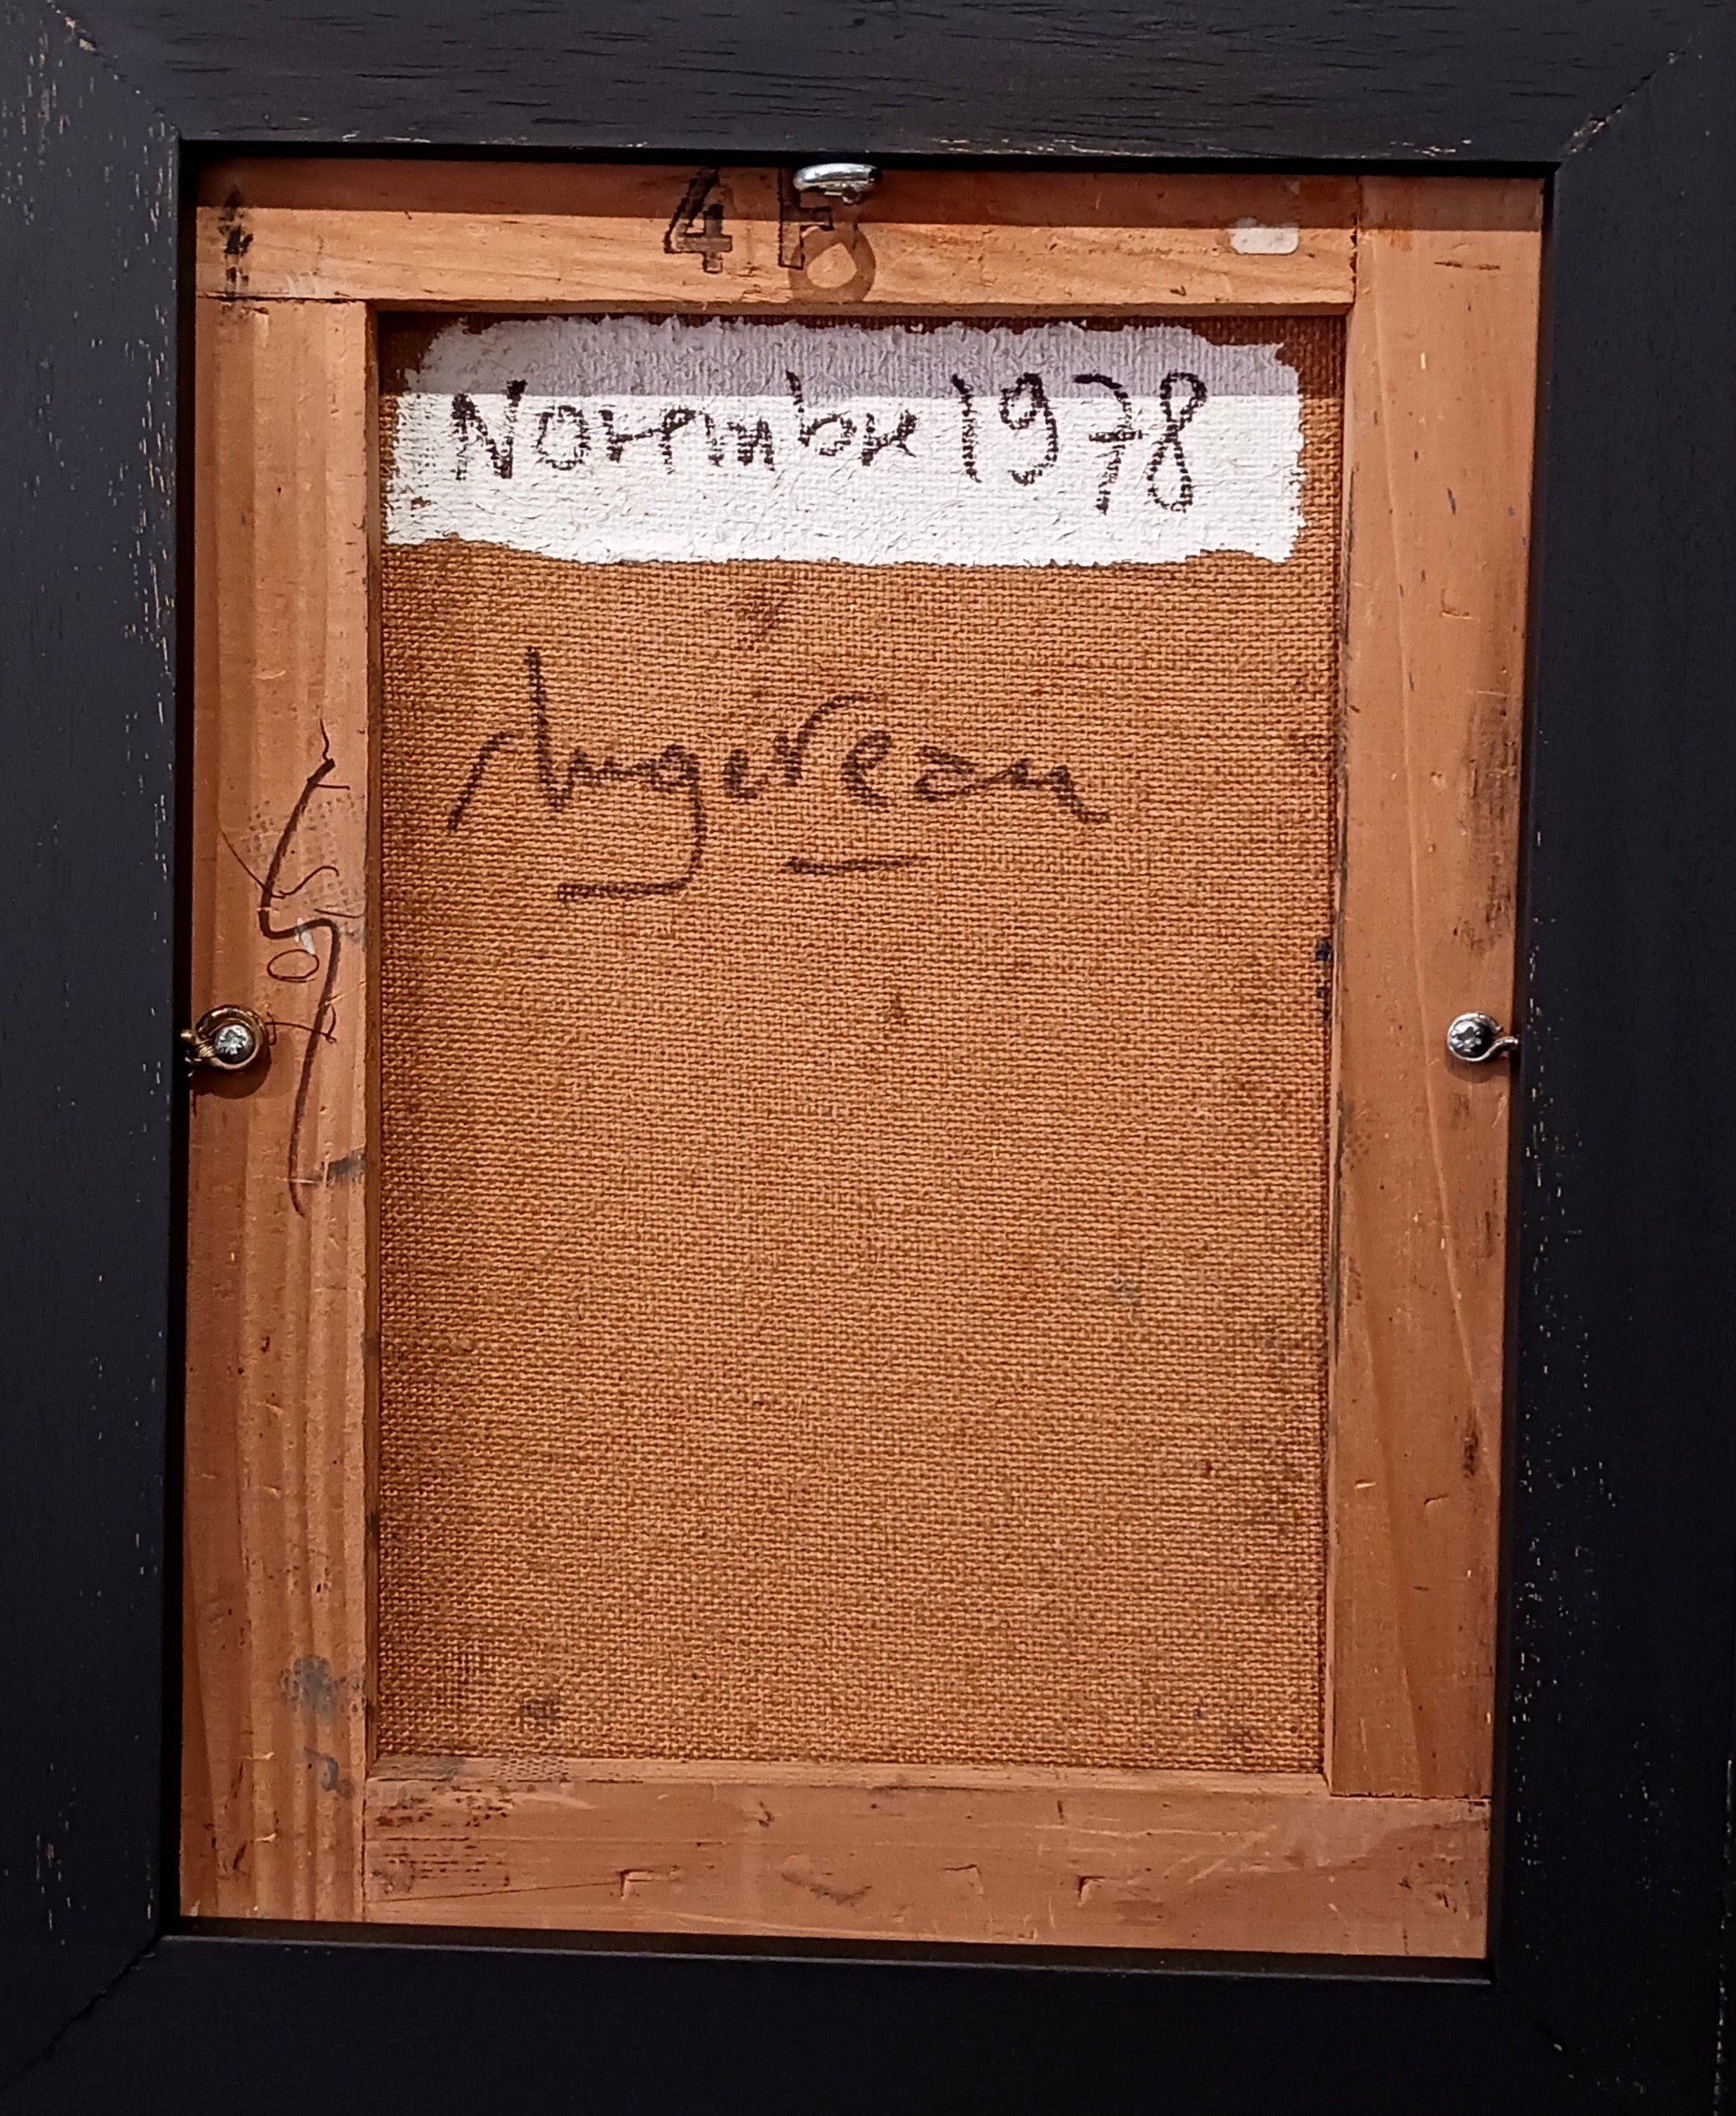 4F
Novembre 1978
Augereau